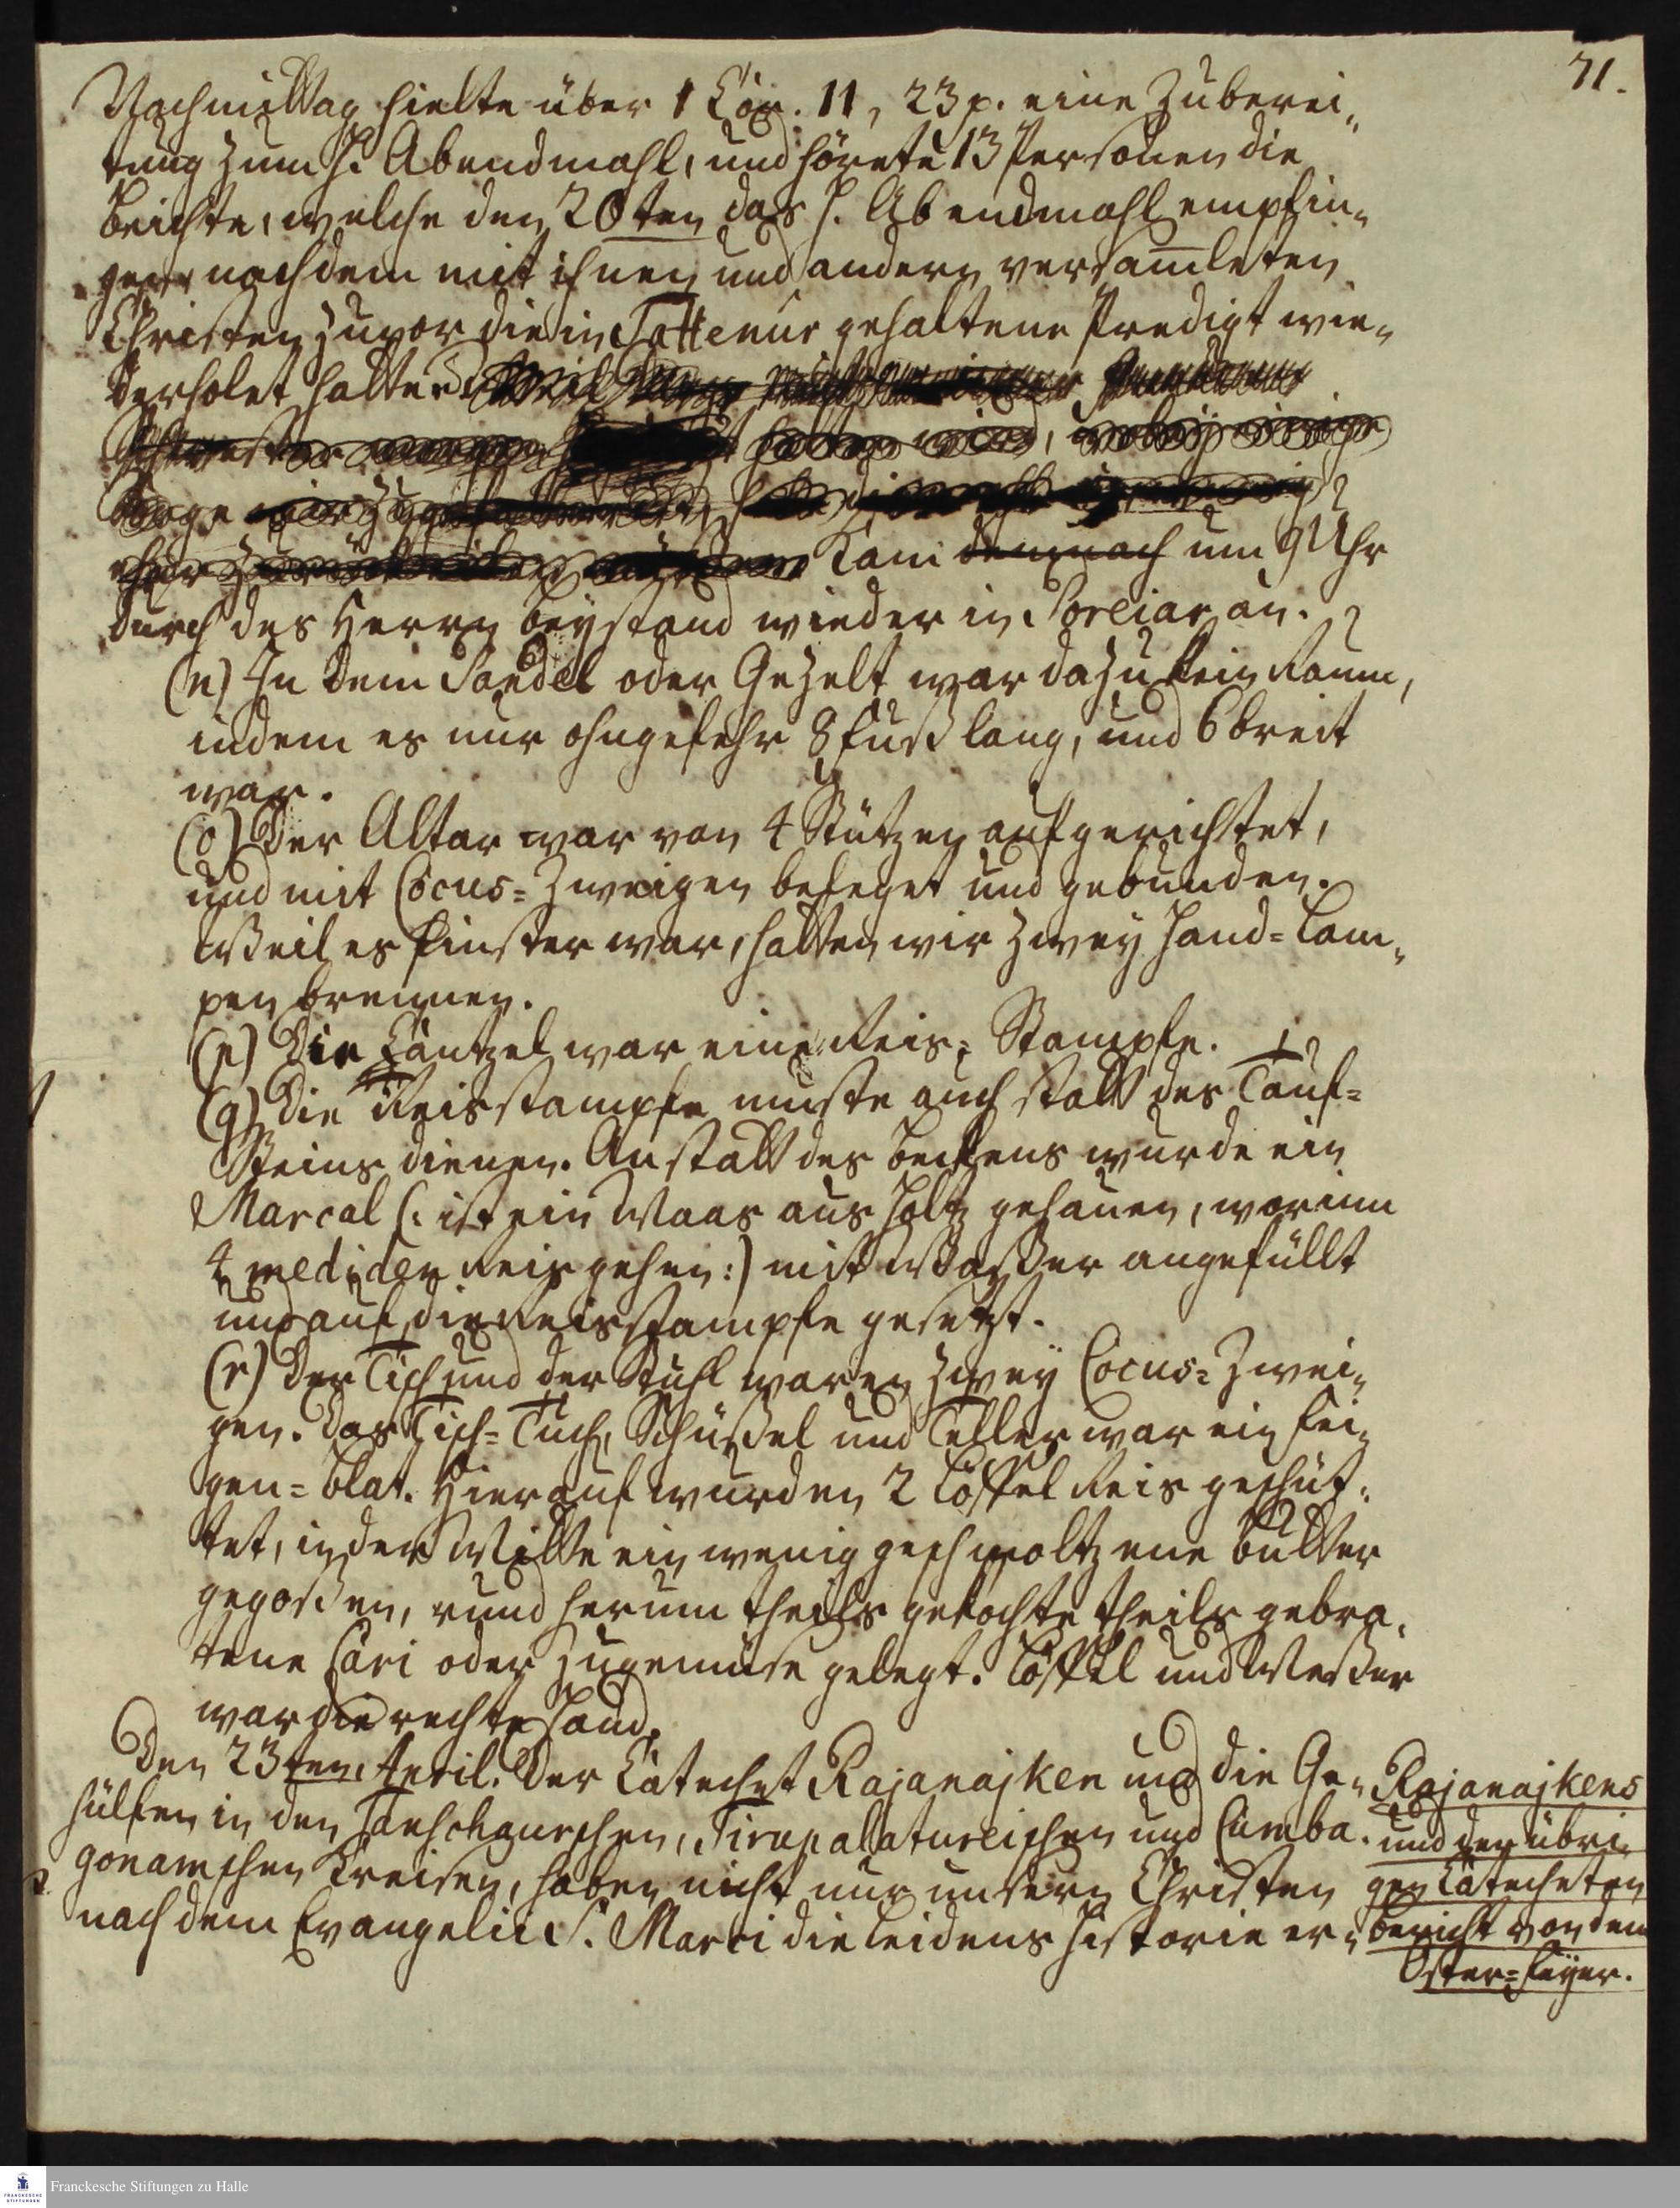 71.
Nachmittag hielte über 1 Cor. 11, 23 p. eine Zuberei-
tung zum H. Abendmahl, und hörete 13 Personen die
Beichte, welche den 20ten das H. Abendmahl empfin-
gen nachdem mit ihnen und andern versam̅leten
Christen zuvor die in Sattenur gehaltene Predigt wie-
derholet hatte.
hatten wird, wobey einige
Tage
kam demnach um 9 Uhr
durch des Herrn Beystand wieder in Poreiar an.
(n) In dem Pandel oder Gezelt war dazu kein Raum,
indem es nur ohngefehr 8 Fuß lang, und 6 breit
war.
(o) Der Altar war von 4 Stützen aufgerichtet,
und mit Cocus=Zweigen beleget und gebunden.
Weil es finster war, hatten wir zwey Hand=Lam-
pen brennen.
(p) Die Cantzel war eine Reis=Stampfe.
(q) Die Reisstampfe muste auch statt des Tauf=
Steins dienen. Anstatt des Beckens wurde ein
Marcal (: ist ein Maas aus Holtz gehauen, worinn
4 mediden Reis gehen :) mit Waßer angefüllt
und auf die Reisstampfe gesetzt.
(r) Der Tisch und der Stuhl waren zwey Cocus=Zwei-
gen. Das Tisch=Tuch, Schüßel und Teller war ein Fei-
gen=Blat. Hierauf wurden 2 Löffel Reis geschüt-
tet, in der Mitte ein wenig geschmoltzene Butter
gegoßen, rund herum theils gekochte theils gebra-
tene Cari oder Zugemüse gelegt. Löffel und Meßer
war die rechte Hand.
Den 23ten April. Der Catechet Rajanajken und die Ge-
hülfen in den Tanschaurschen, Tirupalatureischen und Cumba-
gonamschen Kreisen, haben nicht nur unsern Christen
nach dem Evangelio S. Marci die Leidens Historie er-
Rajanajkens
und der übri-
gen Catecheten
Bericht von dem
Oster=Feyer.
Franckesche Stiftungen zu Halle
FRANCKESCHE
STIFTUNGEN